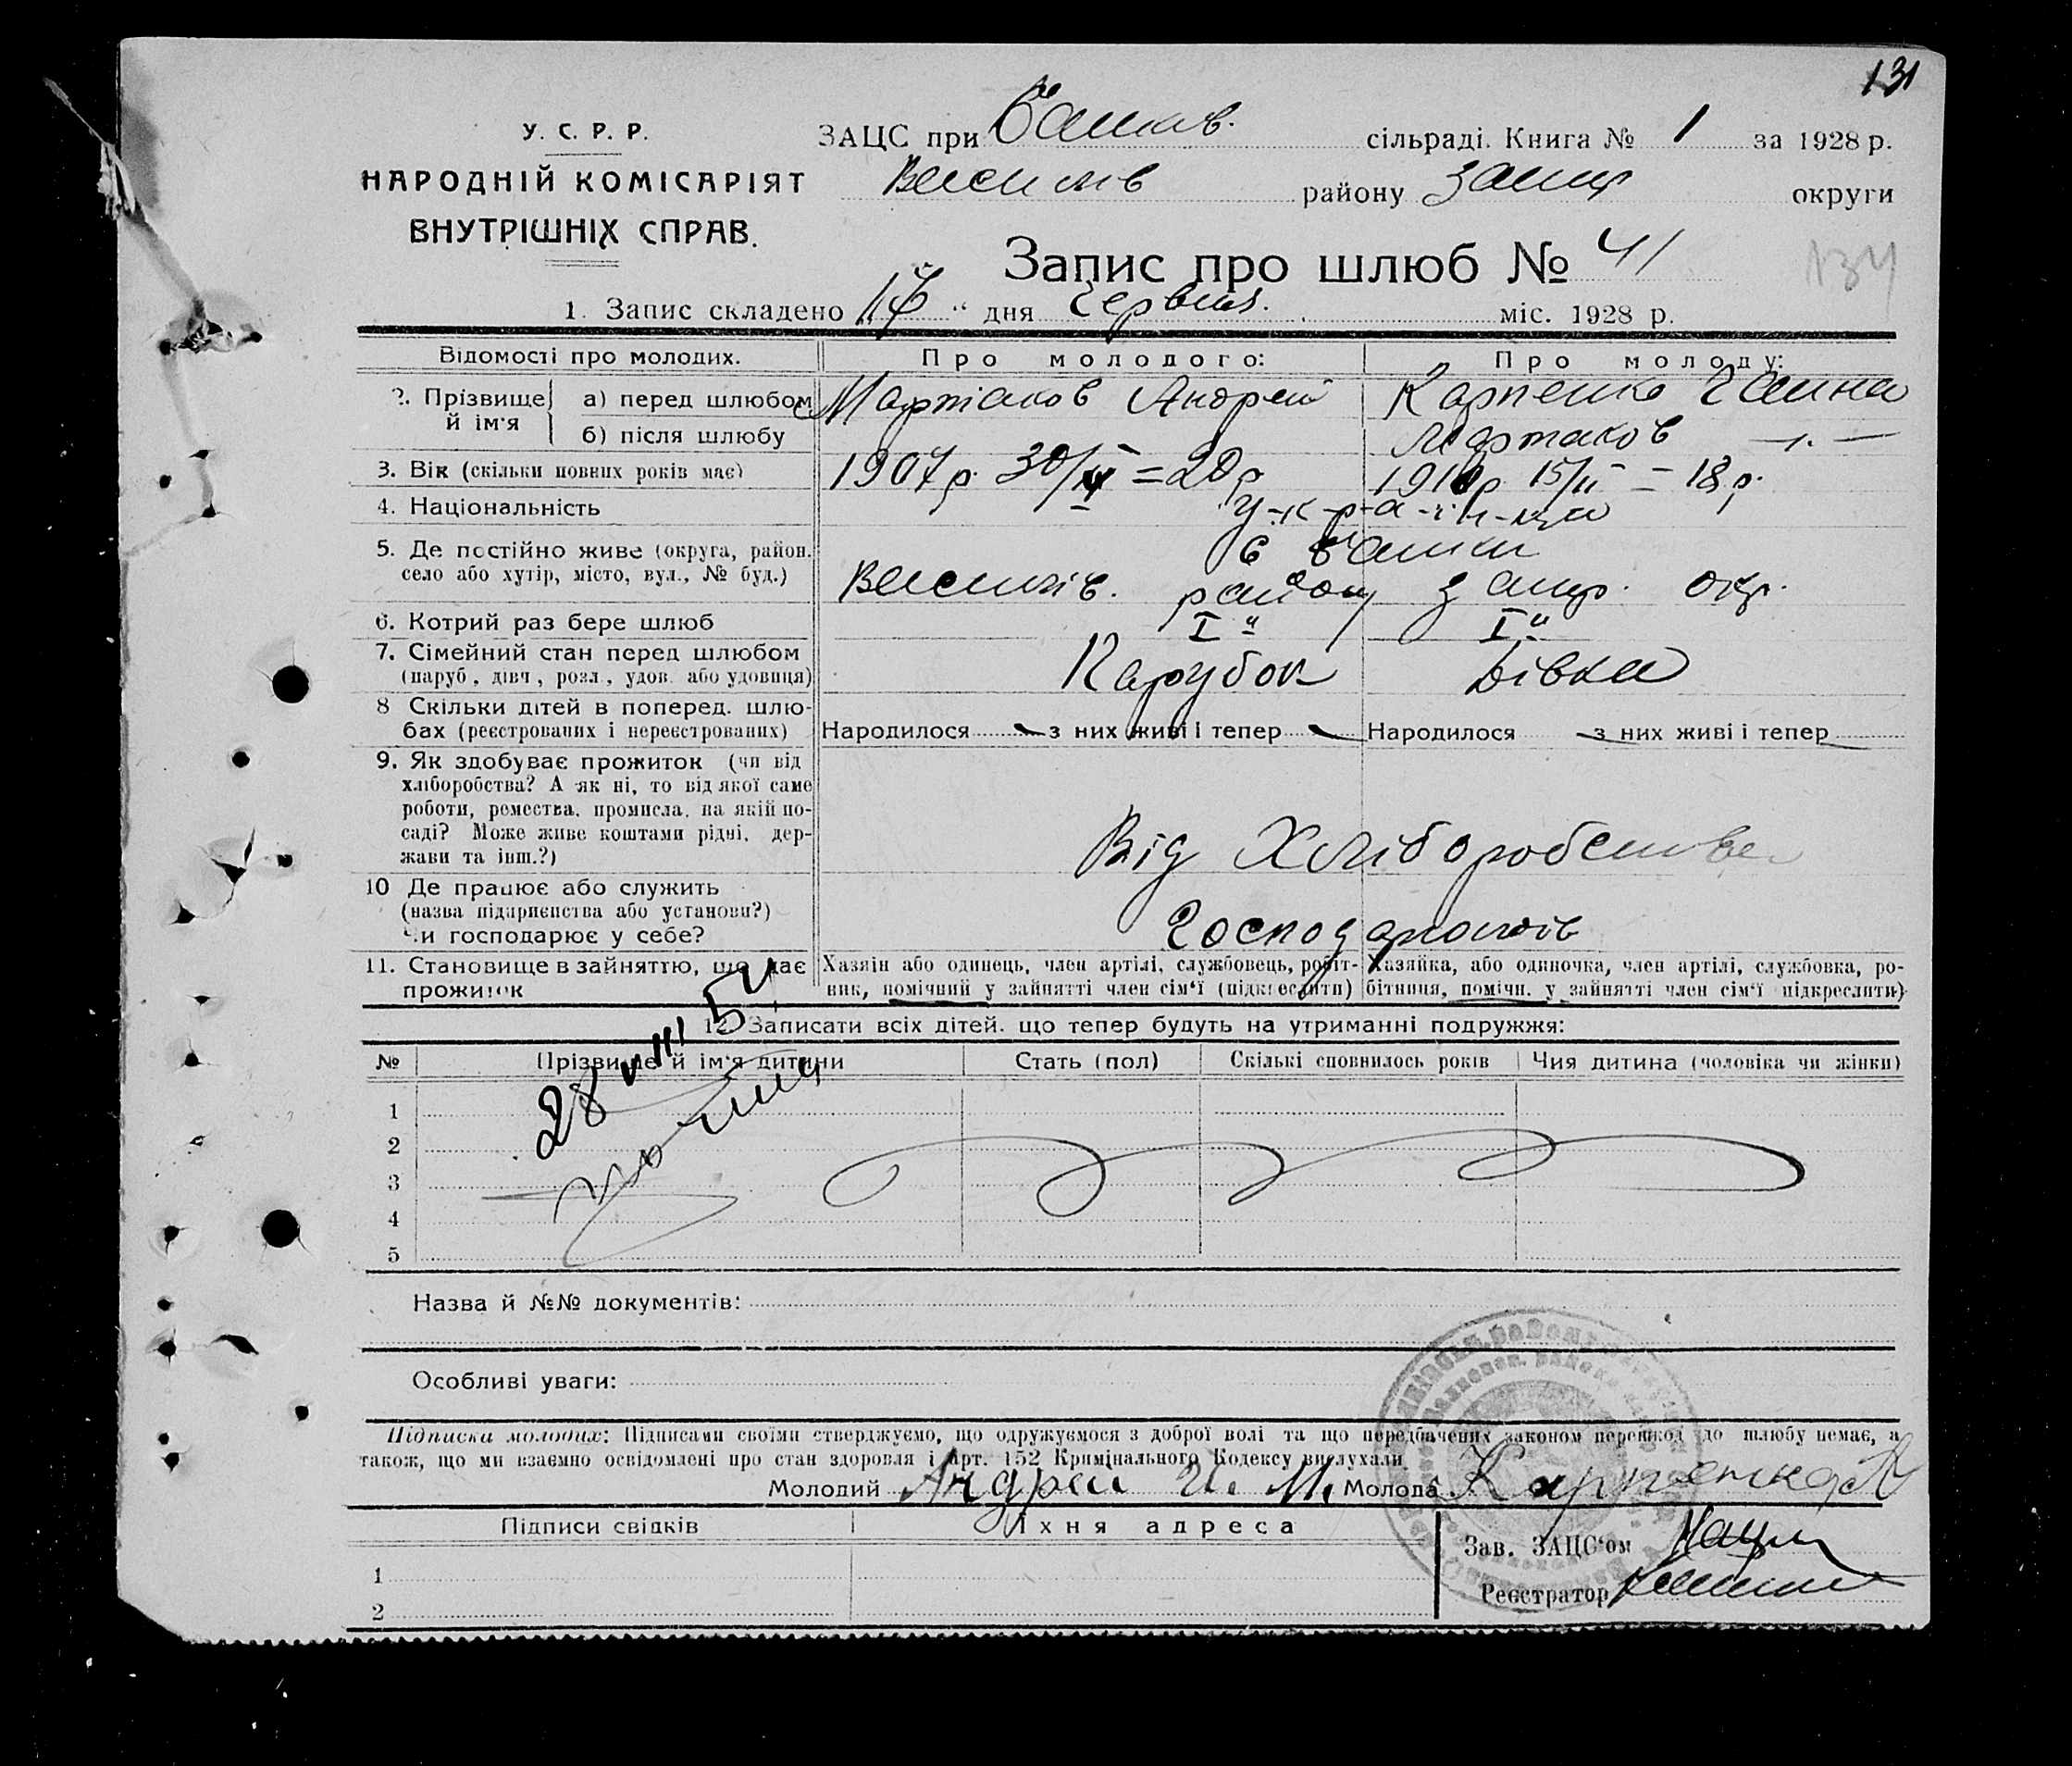 131
У. С. Р. Р.
НАРОДНІЙ КОМІСАРІЯТ
ВНУТРІШНІХ СПРАВ.
ЗАЦС при сільраді. Книга № 1 за 1928 р.
Василів району Запор округи
Запис про шлюб № 41
134
1. Запис складено „17“ дня Червня міс. 1928 р.
Відомості про молодих. Про молодого: Про молоду:
2. Прізвище й ім'я а) перед шлюбом Мартаков Андрей Карпенко Ганна
б) після шлюбу Мартаков
3. Вік (скільки повних років має) 1907 р. = 20 р 1910 р 15/II = 18 р.
4. Національність у-к-р-а-ї-н-ци
5. Де постійно живе (округа, район. с Балки
село або хутір, місто, вул., № буд.) Василів. району Запор. окр.
6. Котрий раз бере шлюб I й I й
7. Сімейний стан перед шлюбом Парубок Дівка
(паруб, дівч, розл, удов. або удовиця)
8 Скільки дітей в поперед. шлю-
бах (реєстрованих і нереєстрованих) Народилося — з них живі і тепер — Народилося — з них живі і тепер —
9. Як здобуває прожиток (чи від
хліборобства? А як ні, то від якої саме
роботи, ремества, промисла, на якій по-
саді? Може живе коштами рідні, дер-
жави та інш.?) Від Хліборобства
10 Де працює або служить
(назва підприєнства або установи?)
Чи господарює у себе?
11. Становище в зайняттю, що дає Хазяін або одинець, член артілі, службовець, робіт- Хазяйка, або одиночка, член артілі, службовка, ро-
прожиток ник, помічний у зайнятті член сім'ї (підкреслити) бітниця, помічн. у зайнятті член сім'ї підкреслити)
12. Записати всіх дітей. що тепер будуть на утриманні подружжя:
28 VIII 54
№ Прізвище й ім'я дитини Стать (пол) Скількі сповнилось років Чия дитина (чоловіка чи жінки)
1
2
3
4
5
Назва й №№ документів:
Особливі уваги:
Підписка молодих: Підписами своїми стверджуємо, що одружуємося з доброї волі та що передбачених законом перешкод до шлюбу немає, а
також, що ми взаємно освідомлені про стан здоровля і арт. 152 Кримінального Кодексу вислухали
Молодий Андреи И. М. Молода Карпенко
Підписи свідків Їхня адреса
Зав. ЗАЦС'ом
1
Реєстратор
2